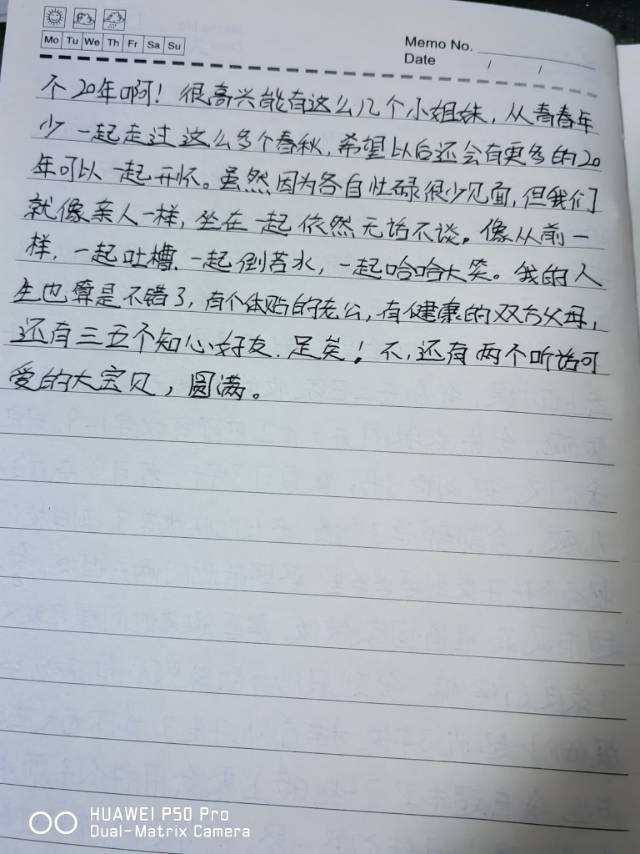 Mo Tu We Th Fr Sa Su
Memo No.
Date / /
个20年啊！很高兴能有这么几个小姐妹，从青春年
少一起走过这么多个春秋，希望以后还会有更多的20
年可以一起开怀。虽然因为各自忙碌很少见面，但我们
就像亲人一样，坐在一起依然无话不谈。像从前一
样，一起吐槽、一起倒苦水，一起哈哈大笑。我的人
生也算是不错了，有个体贴的老公，有健康的双方父母，
还有三五个知心好友.足矣！不，还有两个听话可
爱的大宝贝，圆满。
HUAWEI P50 Pro
Dual-Matrix Camera